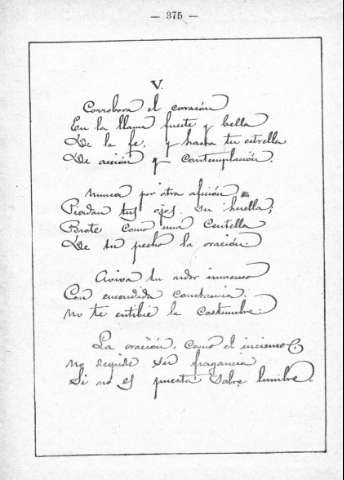 — 375 —
V.
Corrobora el corazón
En la llama fuerte y bella
De la fe, y hasta tu estrella
De acción y contemplación.
Nunca por otra afición
Pierdan tus ojos su huella;
Brote como una centella
De tu pecho la oración.
Aviva tu ardor inmenso
Con encendida constancia.
No te entibie la costumbre.
La oración, como el incienso
No despide su fragancia
Si no es puesta sobre lumbre.